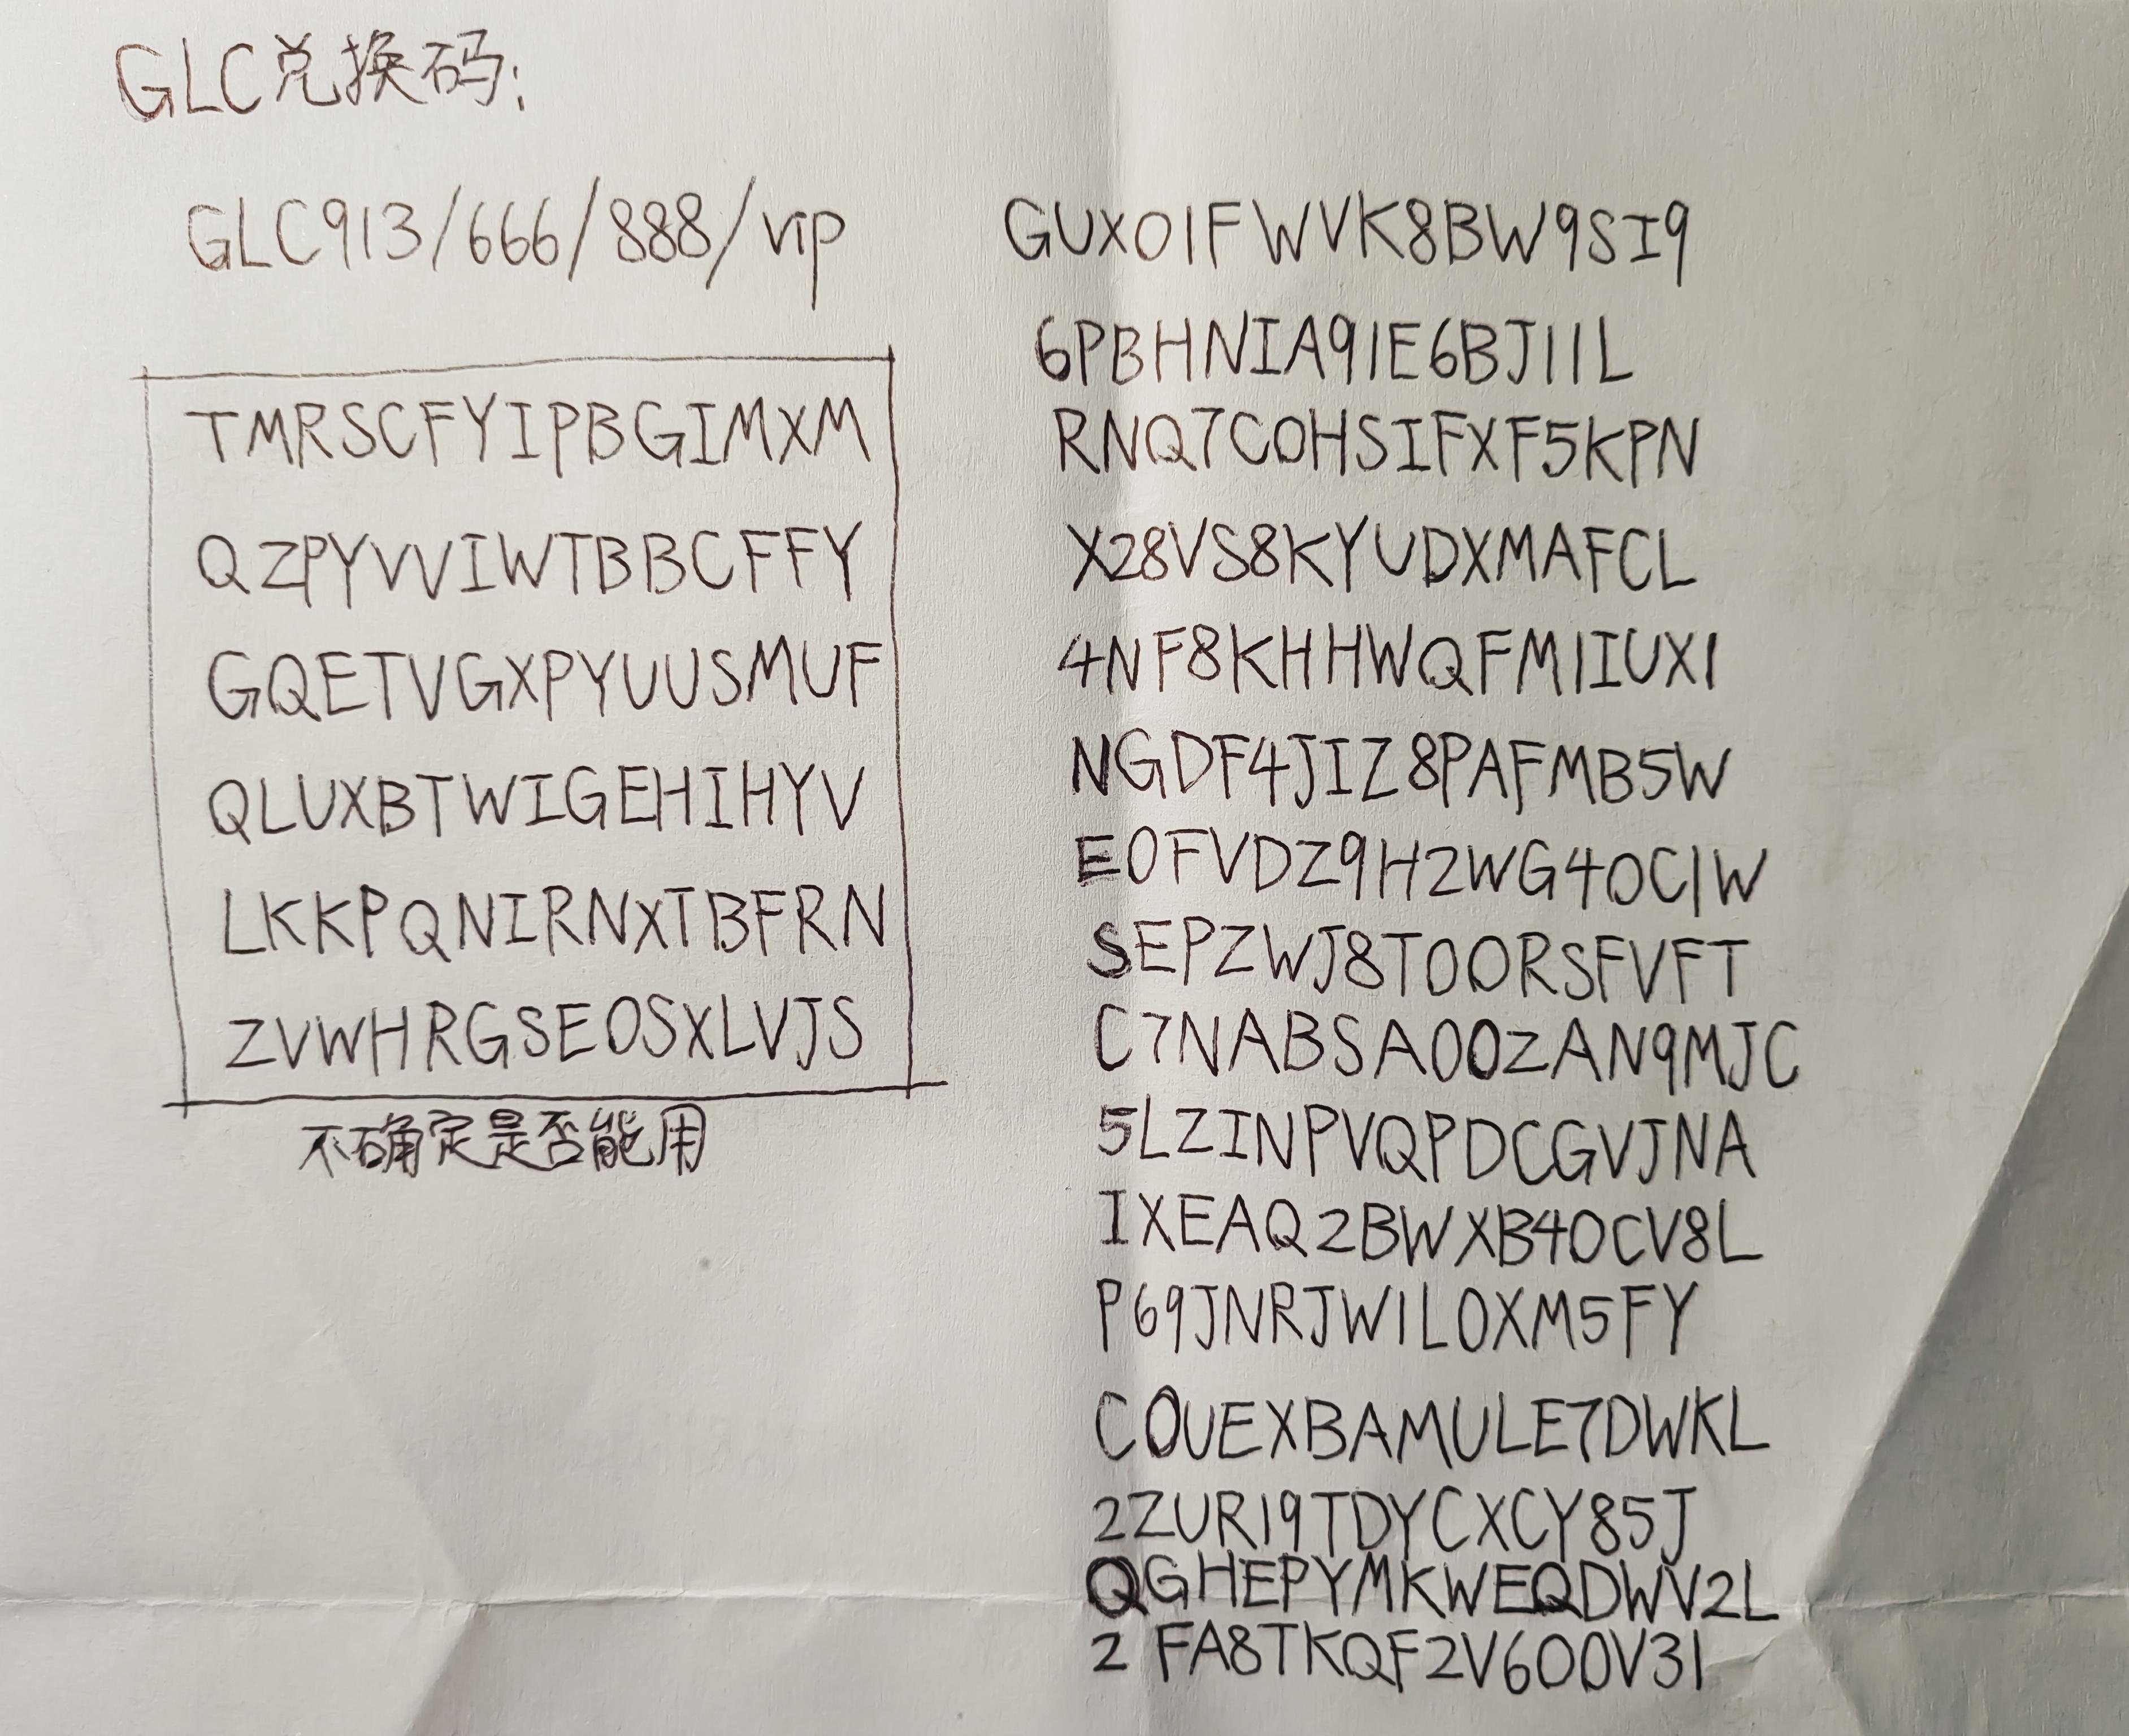 GLC兑换码:
GLC913/666/888/vip
TMRSCFYIPBGIMXM
QZPYVVIWTBBCFFY
GQETVGXPYUUSMUF
QLUXBTWIGEHIHYV
LKKPQNIRNXTBFRN
ZVWHRGSEOSXLVJS
不确定是否能用
GUX01FWVK8BW9SI9
6PBHNIA91E6BJ11L
RNQ7C0HSIFXF5KPN
X28VS8KYUDXMAFCL
4NF8KHHWQFM1IUX1
NGDF4JIZ8PAFMB5W
E0FVDZ9H2WG4OC1W
SEPZWJ8TO0RSFVFT
C7NABSA00ZAN9MJC
5LZINPVQPDCGVJNA
IXEAQ2BWXB4OCV8L
P69JNRJW1L0XM5FY
C0UEXBAMULE7DWKL
2ZUR19TDYCXCY85J
QGHEPYMKWEQDWV2L
2FA8TKQF2V6O0V31